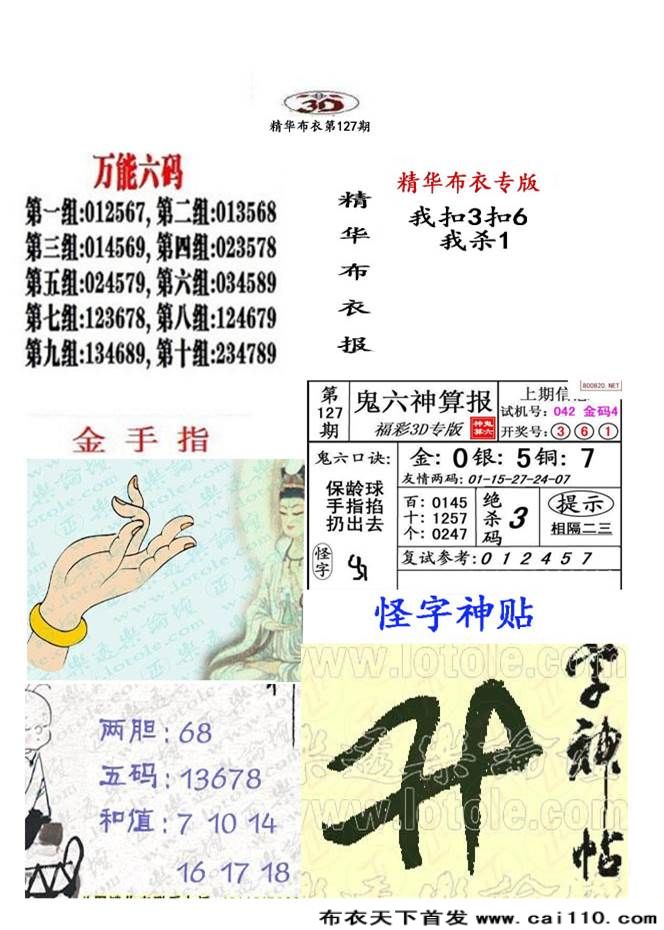 3D
精华布衣第127期
万能六码
第一组:012567, 第二组:013568
第三组:014569, 第四组:023578
第五组:024579, 第六组:034589
第七组:123678, 第八组:124679
第九组:134689, 第十组:234789
精华布衣报
精华布衣专版
我扣3扣6
我杀1
800820.NET
第127期
鬼六神算报
福彩3D专版
神鬼算六
上期信息
试机号: 042 金码4
开奖号: 3 6 1
鬼六口诀:
保龄球
手指掐
扔出去
怪字
金: 0 银: 5 铜: 7
友情两码: 01-15-27-24-07
百: 0145
十: 1257
个: 0247
绝杀码 3
提示
相隔二三
复试参考: 0 1 2 4 5 7
金手指
www.lotole.com
怪字神贴
www.lotole.com
字神帖
www.lotole.com
两胆: 68
五码: 13678
和值: 7 10 14
16 17 18
布衣天下首发 www.cai110.com